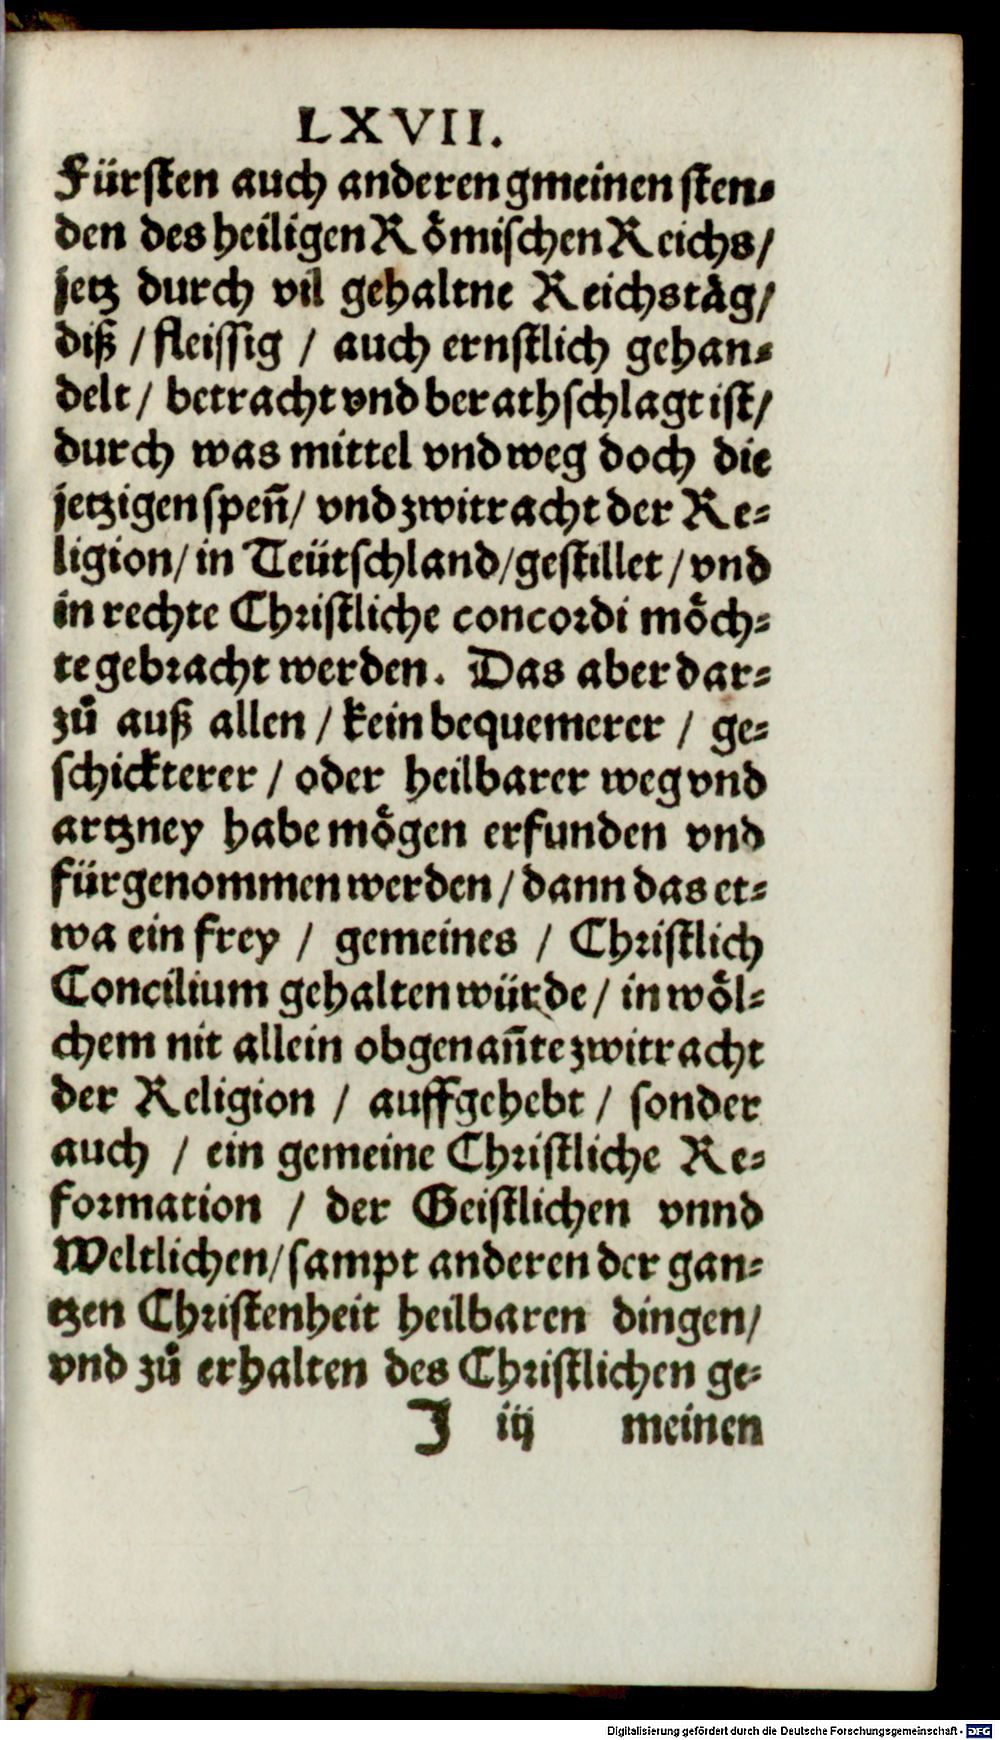 LXVII.
Fürsten auch anderen gmeinen sten⸗
den des heiligen Roͤmischen Reichs/
jetz durch vil gehaltne Reichstäg/
diß / fleissig / auch ernstlich gehan⸗
delt/ betracht vnd berathschlagt ist/
durch was mittel vnd weg doch die
jetzigen speñ/ vnd zwitracht der Re⸗
ligion/ in Teütschland/ gestillet / vnd
in rechte Christliche concordi moͤch⸗
te gebracht werden. Das aber dar⸗
zů auß allen / kein bequemerer / ge⸗
schickterer / oder heilbarer weg vnd
artzney habe moͤgen erfunden vnd
fürgenommen werden / dann das et⸗
wa ein frey / gemeines / Christlich
Concilium gehalten würde / in woͤl⸗
chem nit allein obgenañte zwitracht
der Religion / auffgehebt / sonder
auch / ein gemeine Christliche Re⸗
formation / der Geistlichen vnnd
Weltlichen/ sampt anderen der gan⸗
tzen Christenheit heilbaren dingen/
vnd zů erhalten des Christlichen ge⸗
J iij meinen
Digitalisierung gefördert durch die Deutsche Forschungsgemeinschaft - DFG